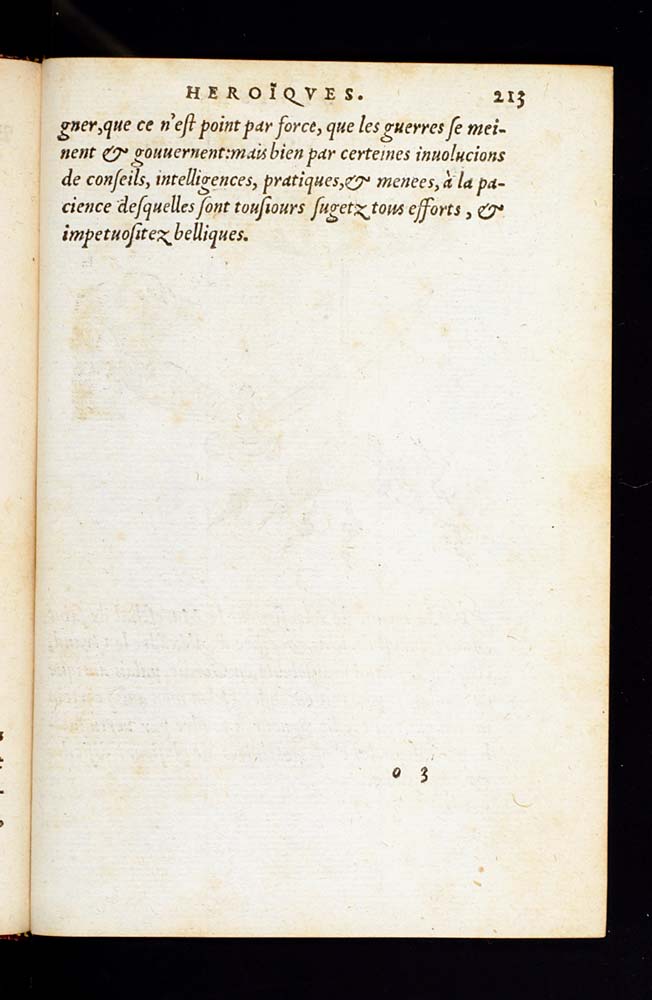 HEROÏQVES. 213
gner,que ce n'eſt point par force, que les guerres ſe mei-
nent & gouuernent:mais bien par certeines inuolucions
de conſeils, intelligences, pratiques,& menees, à la pa-
cience deſquelles ſont touſiours ſugetz tous efforts, &
impetuoſitez belliques.
o 3